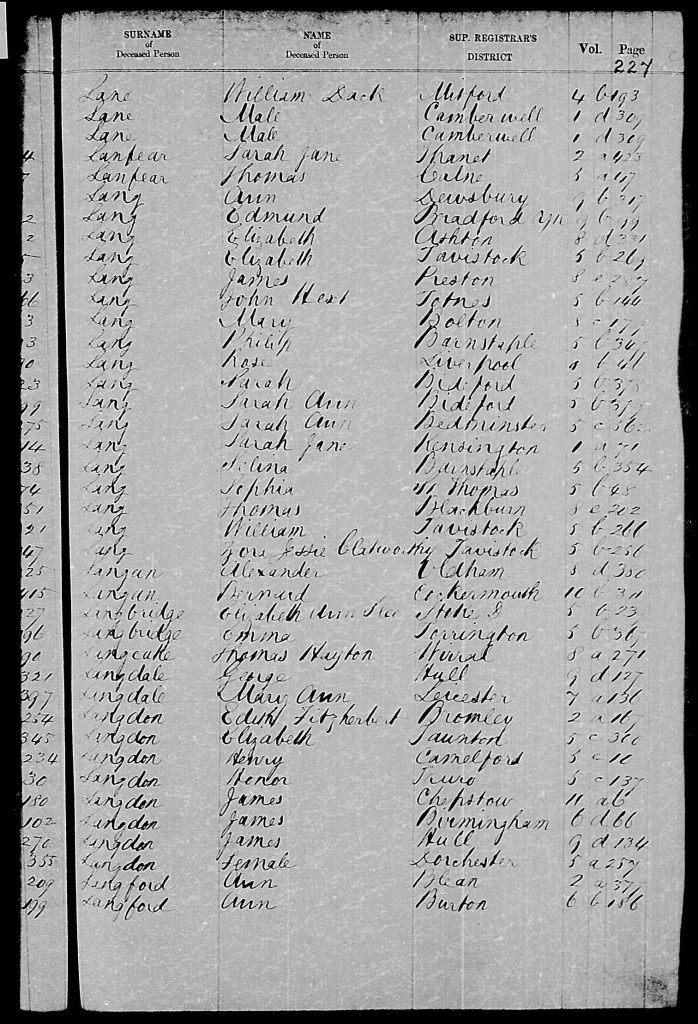 SURNAME of Deceased Person NAME of Deceased Person SUP. REGISTRAR'S DISTRICT Vol. Page
227
Lane William Dack Mitford 4 b 193
Lane Male Camberwell 1 d 309
Lane Male Camberwell 1 d 309
4 Lanfear Sarah Jane Thanet 2 a 423
7 Lanfear Thomas Calne 5 a 47
Lang Ann Dewsbury 9 b 317
2 Lang Edmund Bradford Yk 9 b 99
2 Lang Elizabeth Ashton 8 d 331
5 Lang Elizabeth Tavistock 5 b 269
3 Lang James Preston 8 e
66 Lang John Hext Totnes 5 b 144
3 Lang Mary Bolton 8 c 177
3 Lang Philip Barnstaple 5 b 347
90 Lang Rose Liverpool 8 b
23 Lang Sarah Bideford 5 b 378
99 Lang Sarah Ann Bideford 5 b
75 Lang Sarah Ann Bedminster 5 c
14 Lang Sarah Jane Kensington 1 a 71
38 Lang Selina Barnstaple 5 b 354
74 Lang Sophia St Thomas 5 b 48
51 Lang Thomas Blackburn 8 e 202
21 Lang William Tavistock 5 b 266
47 Lang Jessie Clatworthy Tavistock 5 b 256
25 Langan Alexander Oldham 8 d 350
415 Langan Bernard Cockermouth 10 b 311
27 Langbridge Elizabeth Ann Stoke D 5 b 23
96 Langbridge Emma Torrington 5 b 367
90 Langcake Thomas Hayton Wirral 8 a 271
321 Langdale George Hull 9 d 127
397 Langdale Mary Ann Leicester 7 a 136
254 Langdon Edith Fitzherbert Bromley 2 a 167
345 Langdon Elizabeth Taunton 5 c 306
234 Langdon Henry Camelford 5 c
30 Langdon Honor Truro 5 c 137
180 Langdon James Chepstow 11 a 6
102 Langdon James Birmingham 6 d 66
270 Langdon James Hull 9 d 134
355 Langdon Female Dorchester 5 a 257
209 Langford Ann Blean 2 a 577
199 Langford Ann Burton 6 b 186